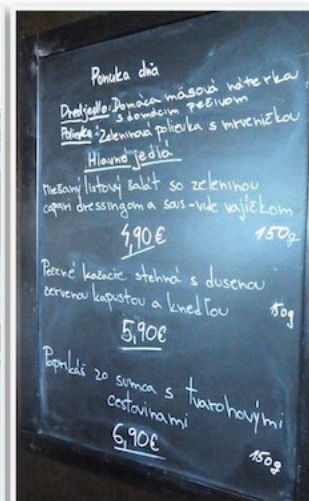 Ponuka dňa
Predjedlo: Domáca mäsová nátierka
s domácim pečivom
Polievka: Zeleninová polievka s mrveničkou
Hlavné jedlá
Miešaný listový šalát so zeleninou
dressingom a sous-vide vajíčkom
4,90€ 150g
Pečené kačacie stehná s dusenou
červenou kapustou a knedľou
5,90€
Paprikáš zo sumca s tvarohovými
cestovinami
6,90€ 150g